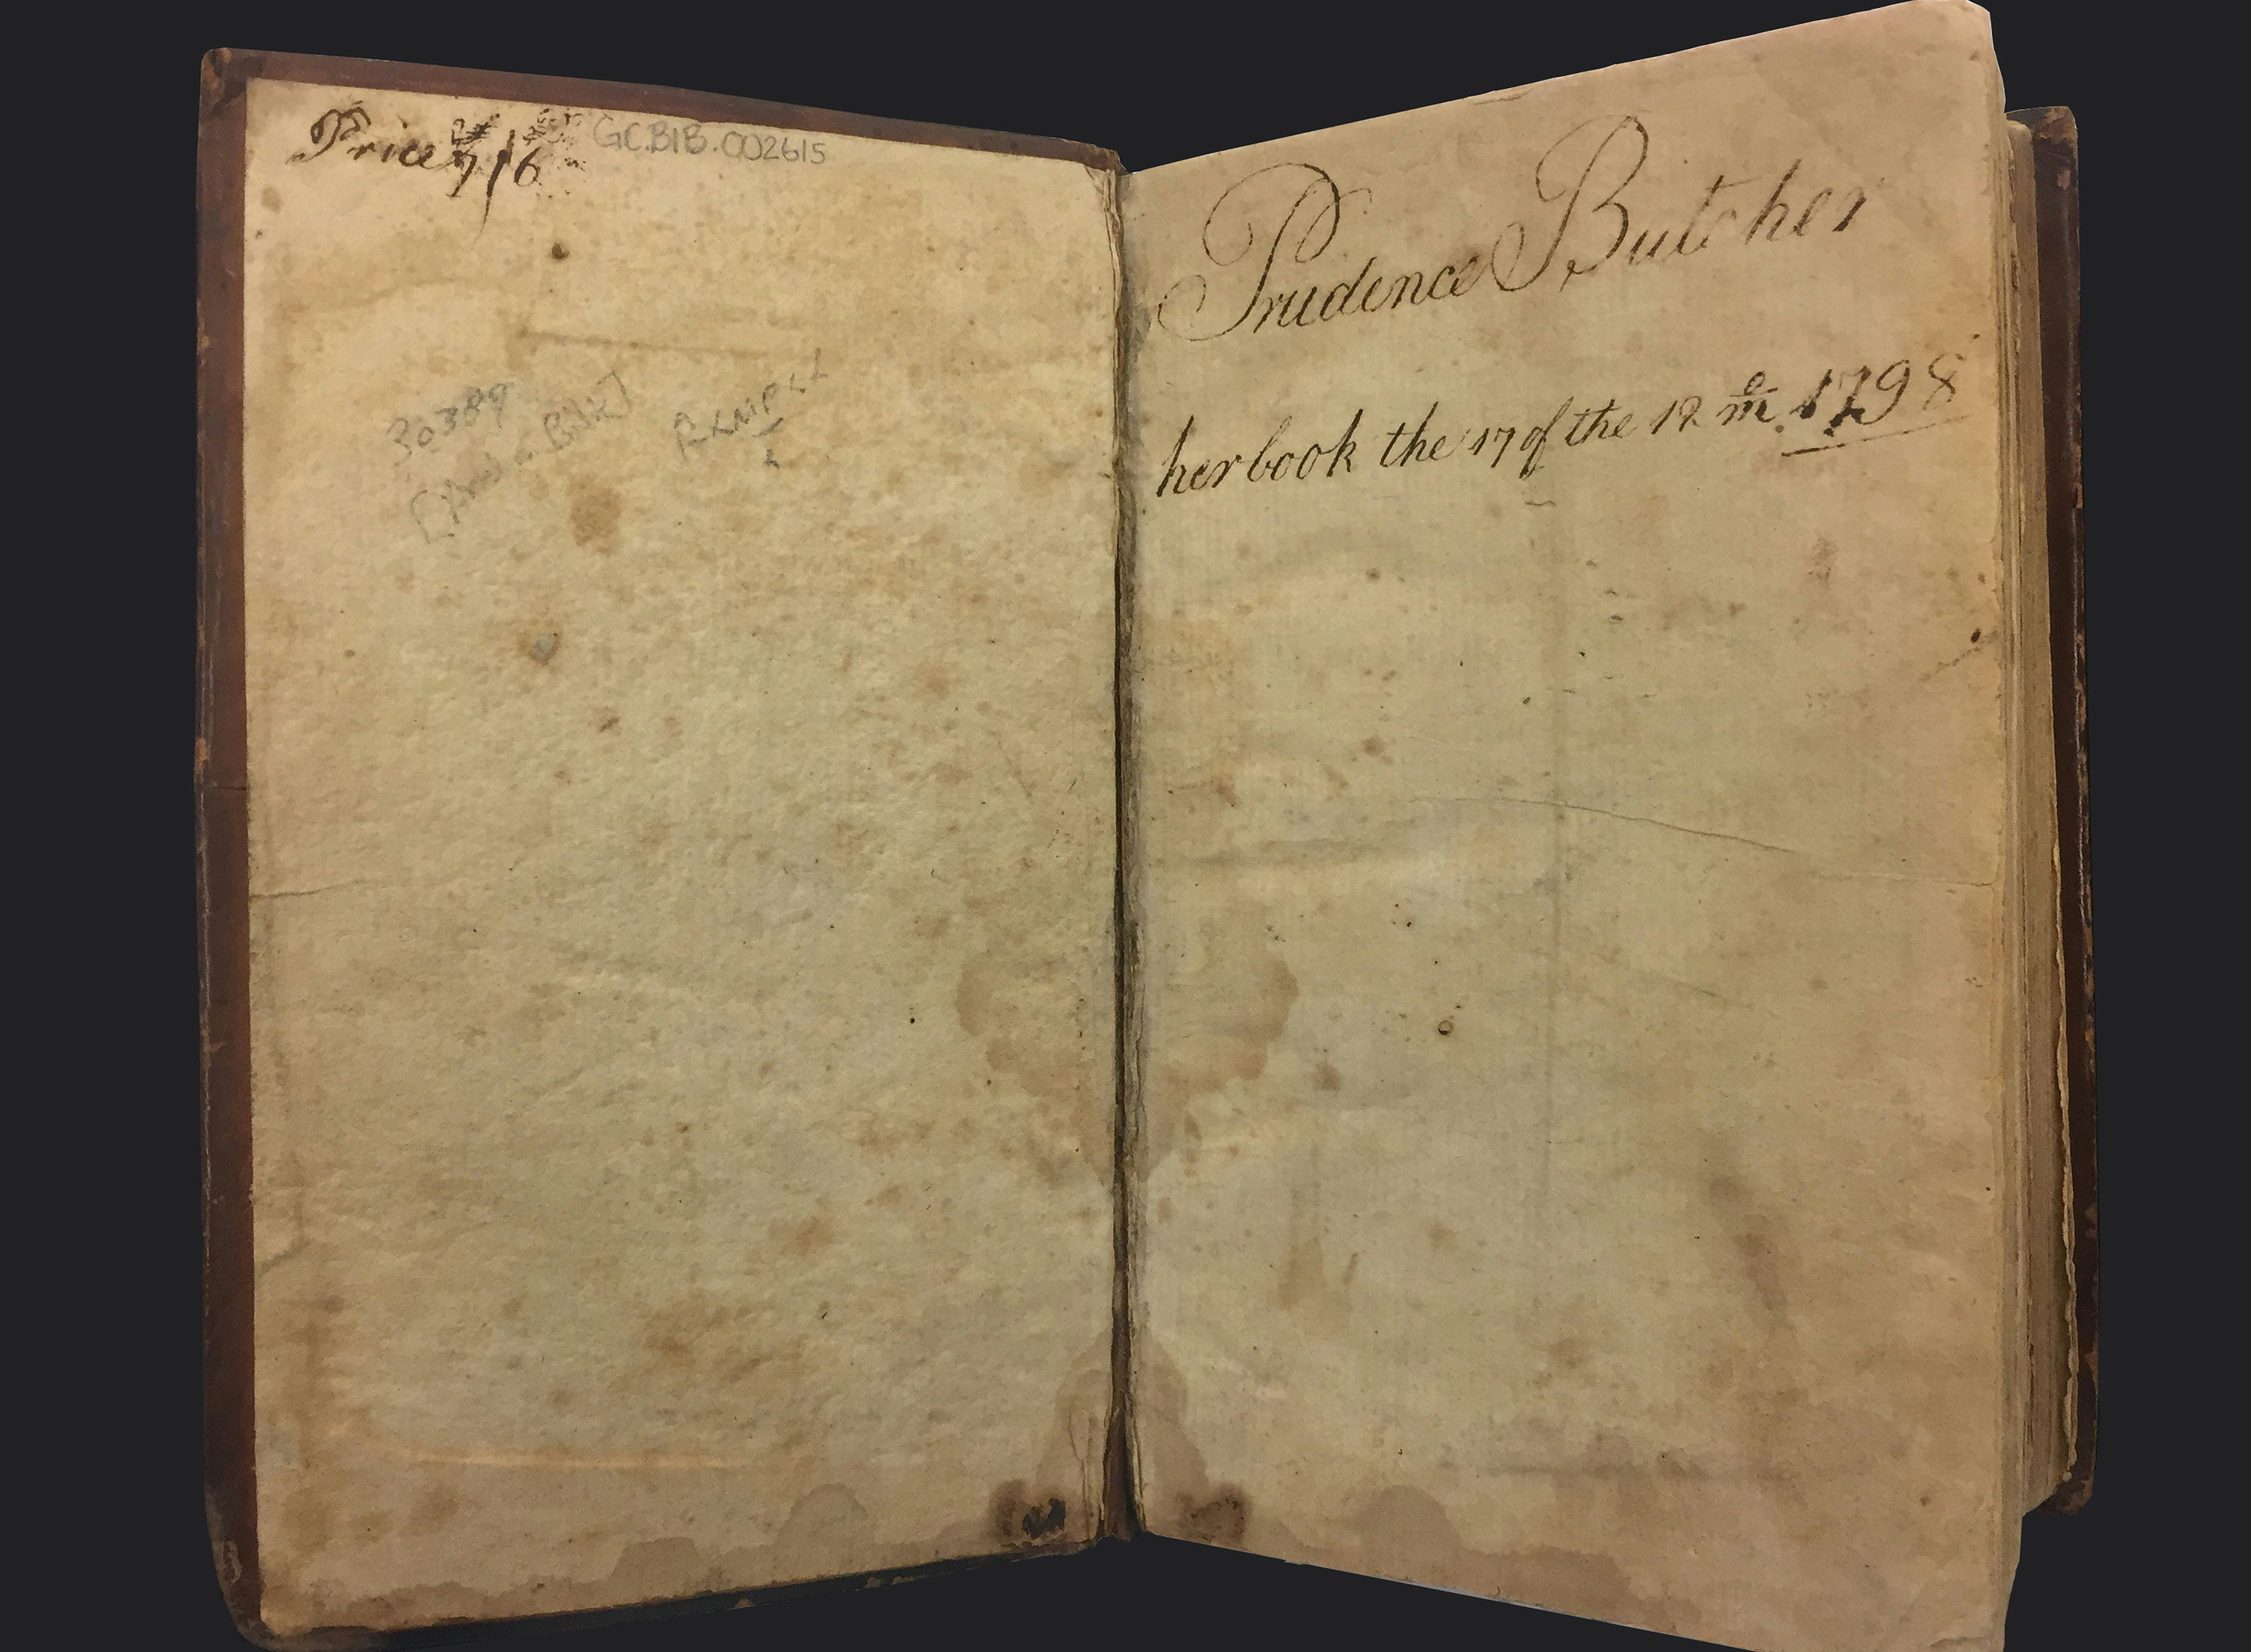 Price 7/6 GC.BIB.002615
30389
Prudence Butcher
her book the 17 of the 12 mo. 1798